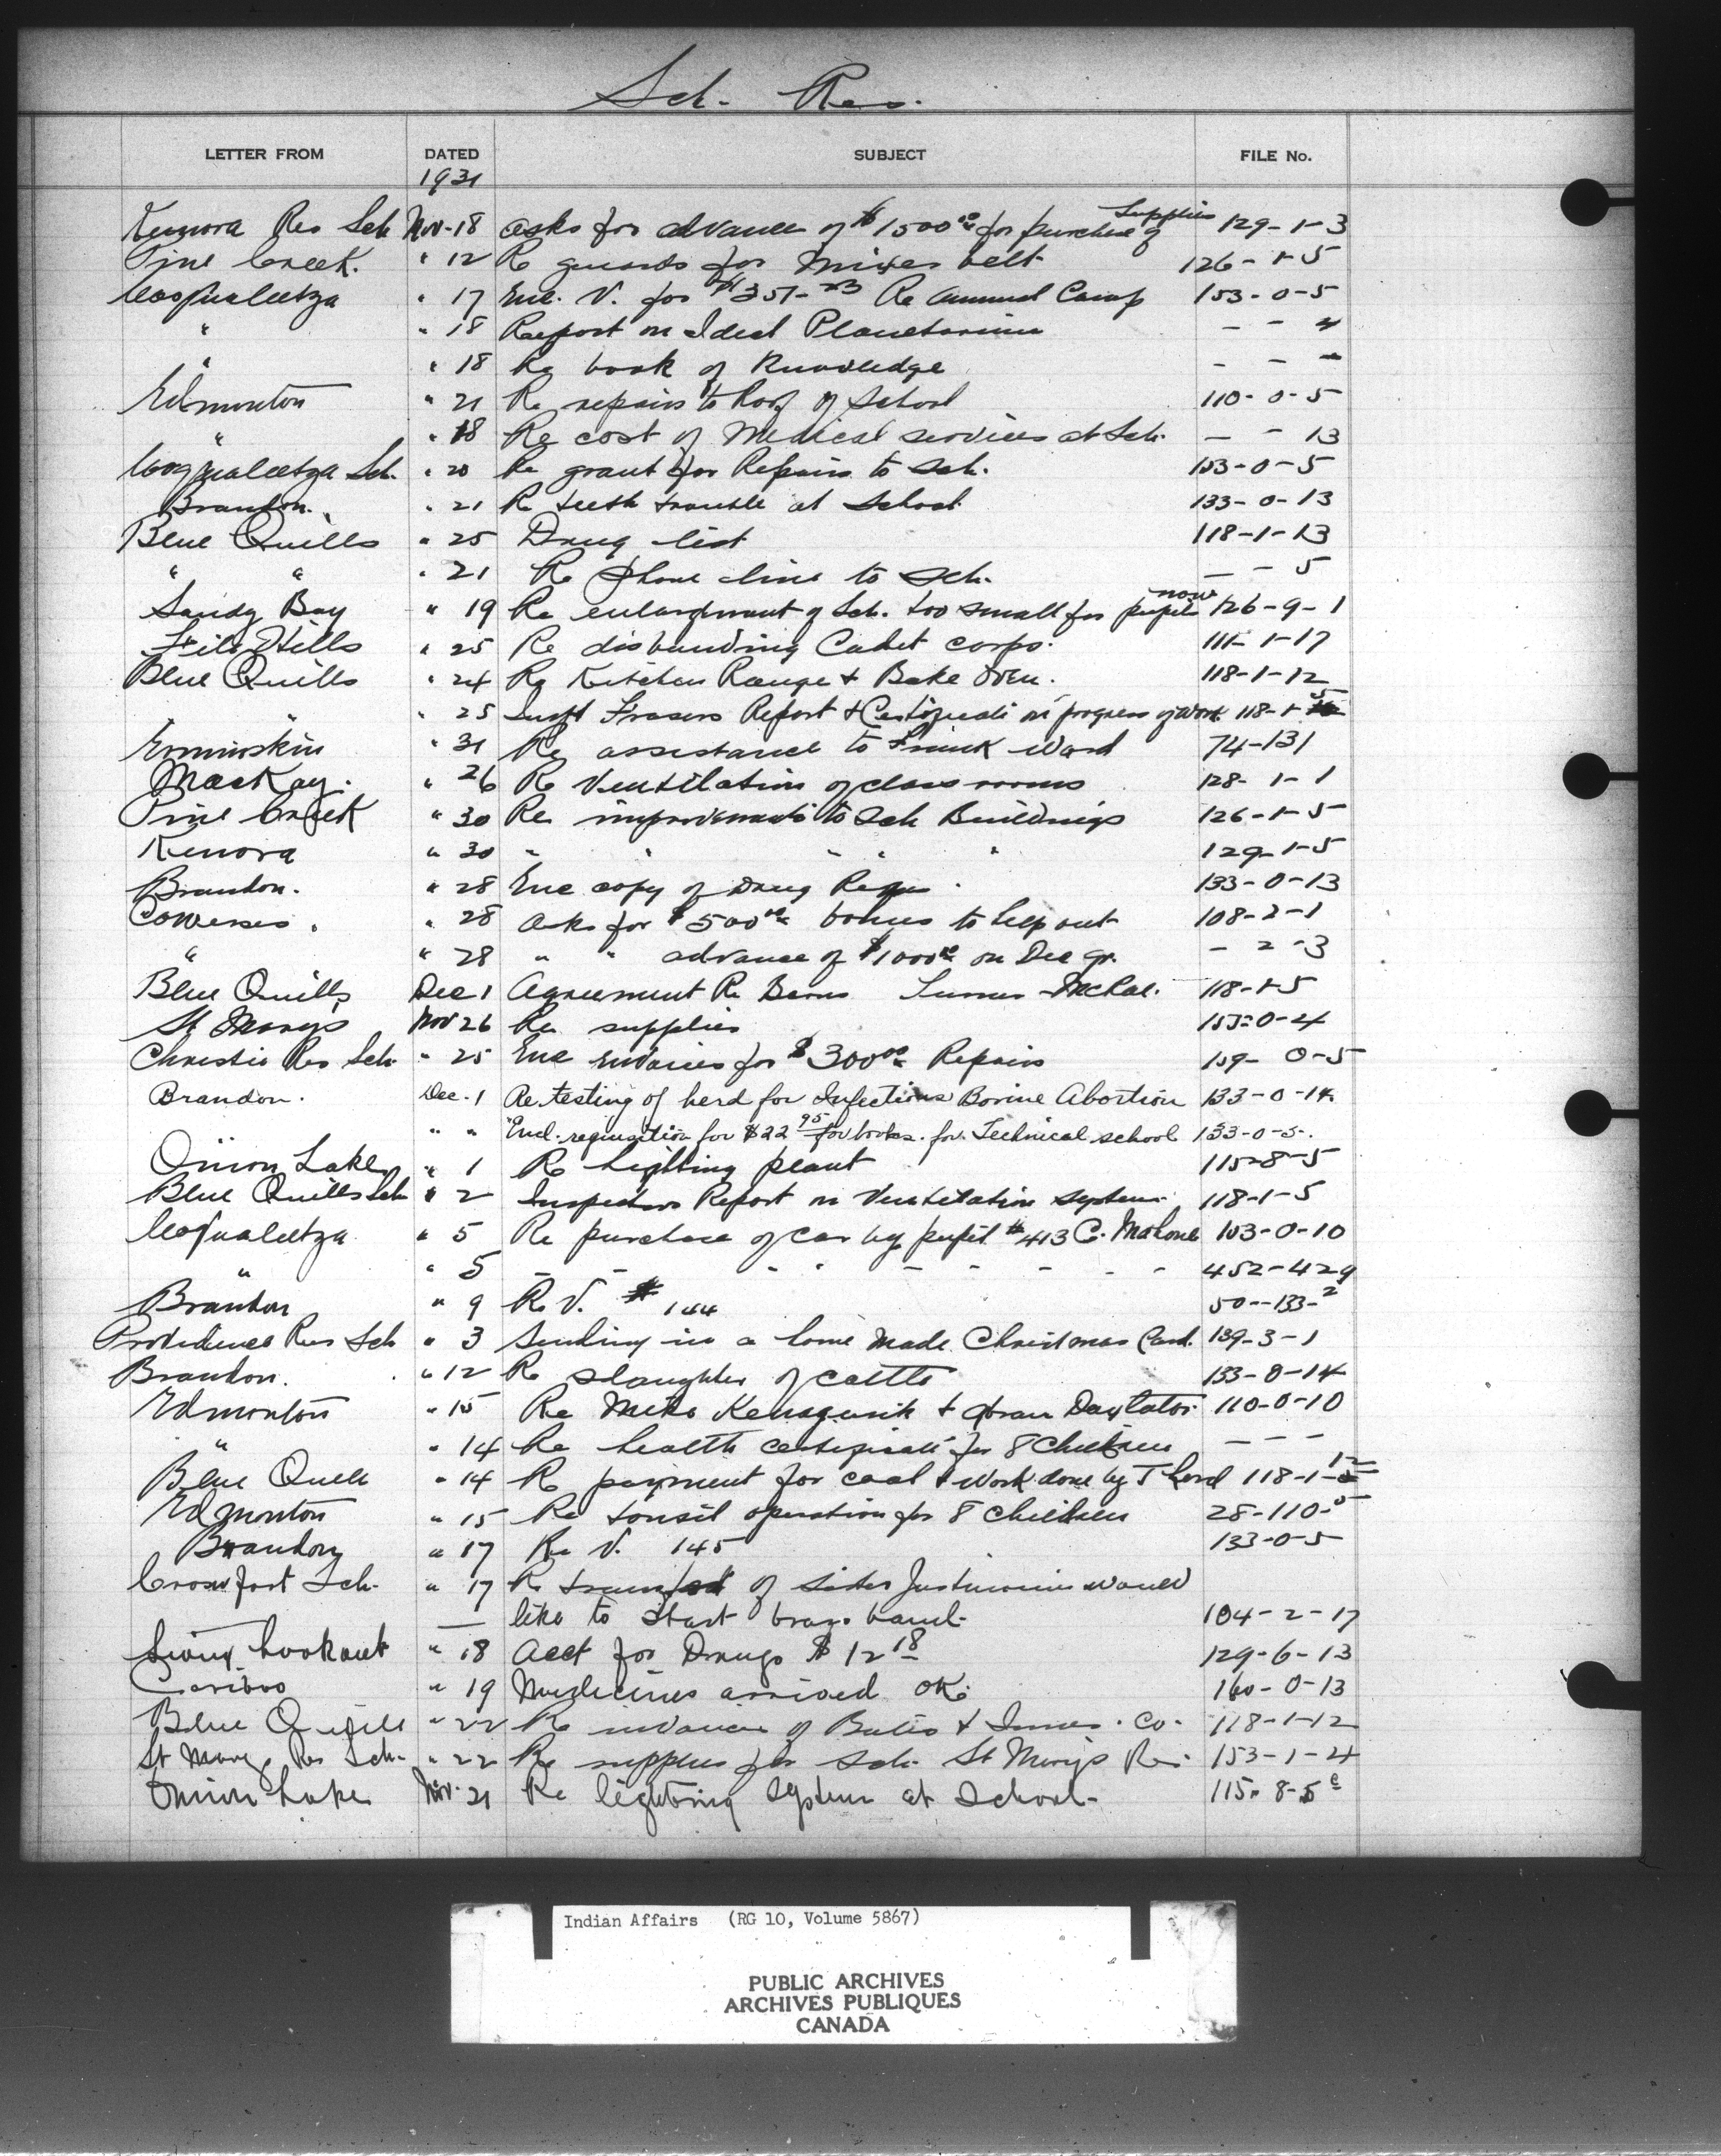 Sch. Res.
LETTER FROM DATED SUBJECT FILE No.
1931
Kenora Res Sch Nov-18 asks for advance of $1500.00 for purchase of supplies 129-1-3
Pine Creek. " 12 Re guards for Mixer belt 126-1-5
Coqualeetza " 17 Enc. V. for $351-23 Re annual Camp 153-0-5
" " 18 Report on Ideal Planetarium - - 4
" " 18 Re book of Knowledge - - -
Edmonton " 21 Re repairs to Roof of School 110-0-5
" " 18 Re cost of Medical services at Sch. - - 13
Coqualeetza Sch. " 20 Re grant for Repairs to Sch. 153-0-5
Brandon. " 21 Re teeth trouble at School 133-0-13
Blue Quills " 25 Drug list 118-1-13
" " " 21 Re Phone line to Sch. - - 5
Sandy Bay " 19 Re enlargement of Sch. too small for now pupils 126-9-1
File Hills " 25 Re disbanding Cadet corps. 111-1-17
Blue Quills " 24 Re Kitchen Range & Bake Oven. 118-1-12
" " 25 Supt Frasers Report & Certificate on progress of Work 118-1-5
Ermineskin " 31 Re assistance to Frank Ward 74-131
MacKay. " 26 Re Ventilation of class rooms 128-1-1
Pine Creek " 30 Re improvements to Sch Buildings 126-1-5
Kenora " 30 " " " " " 129-1-5
Brandon. " 28 Enc copy of Drug Requs. 133-0-13
Cowesses. " 28 asks for $500.00 bonus to help out 108-2-1
" " 28 " " advance of $1000.00 on Dec qr. - 2-3
Blue Quills Dec 1 Agreement Re Barns Turner McRae. 118-1-5
St Marys Nov 26 Re supplies 153-0-4
Christie Res Sch. " 25 Enc invoices for $300.00 Repairs 159-0-5
Brandon. Dec. 1 Re testing of herd for Infectious Bovine Abortion 133-0-14.
" " " Encl. requisition for $22.95 for books. for Technical school 133-0-5.
Onion Lake " 1 Re Lighting plant 115-8-5
Blue Quills Sch " 2 Inspectors Report on Ventilation system 118-1-5
Coqualeetza " 5 Re purchase of car by pupil #413 C. Mahone 153-0-10
" " 5 - - - " - - - - - 452-429
Brandon " 9 Re V. # 144 50-133-2
Providence Res Sch " 3 Sending in a home made Christmas Card. 139-3-1
Brandon. " 12 Re slaughter of cattle 133-0-14
Edmonton " 15 Re & 110-0-10
" " 14 Re health certificate for 8 Children - - -
Blue Quill " 14 Re payment for coal & work done by T Lord 118-1-12
Edmonton " 15 Re tonsil operation for 8 Children 28-110-5
Brandon " 17 Re V. 145 133-0-5
Crowfoot Sch. " 17 Re transfer of Sister would
— like to start brass band. 104-2-17
Sioux Lookout " 18 Acct for Drugs $12.18 129-6-13
Cariboo " 19 Medicines arrived OK. 160-0-13
Blue Quill " 22 Re invoice of & Innes. Co. 118-1-12
St Marys Res Sch. " 22 Re supplies for Sch. St Marys Res 153-1-4
Onion Lake Nov. 21 Re lighting system at School - 115-8-5
Indian Affairs (RG 10, Volume 5867)
PUBLIC ARCHIVES
ARCHIVES PUBLIQUES
CANADA